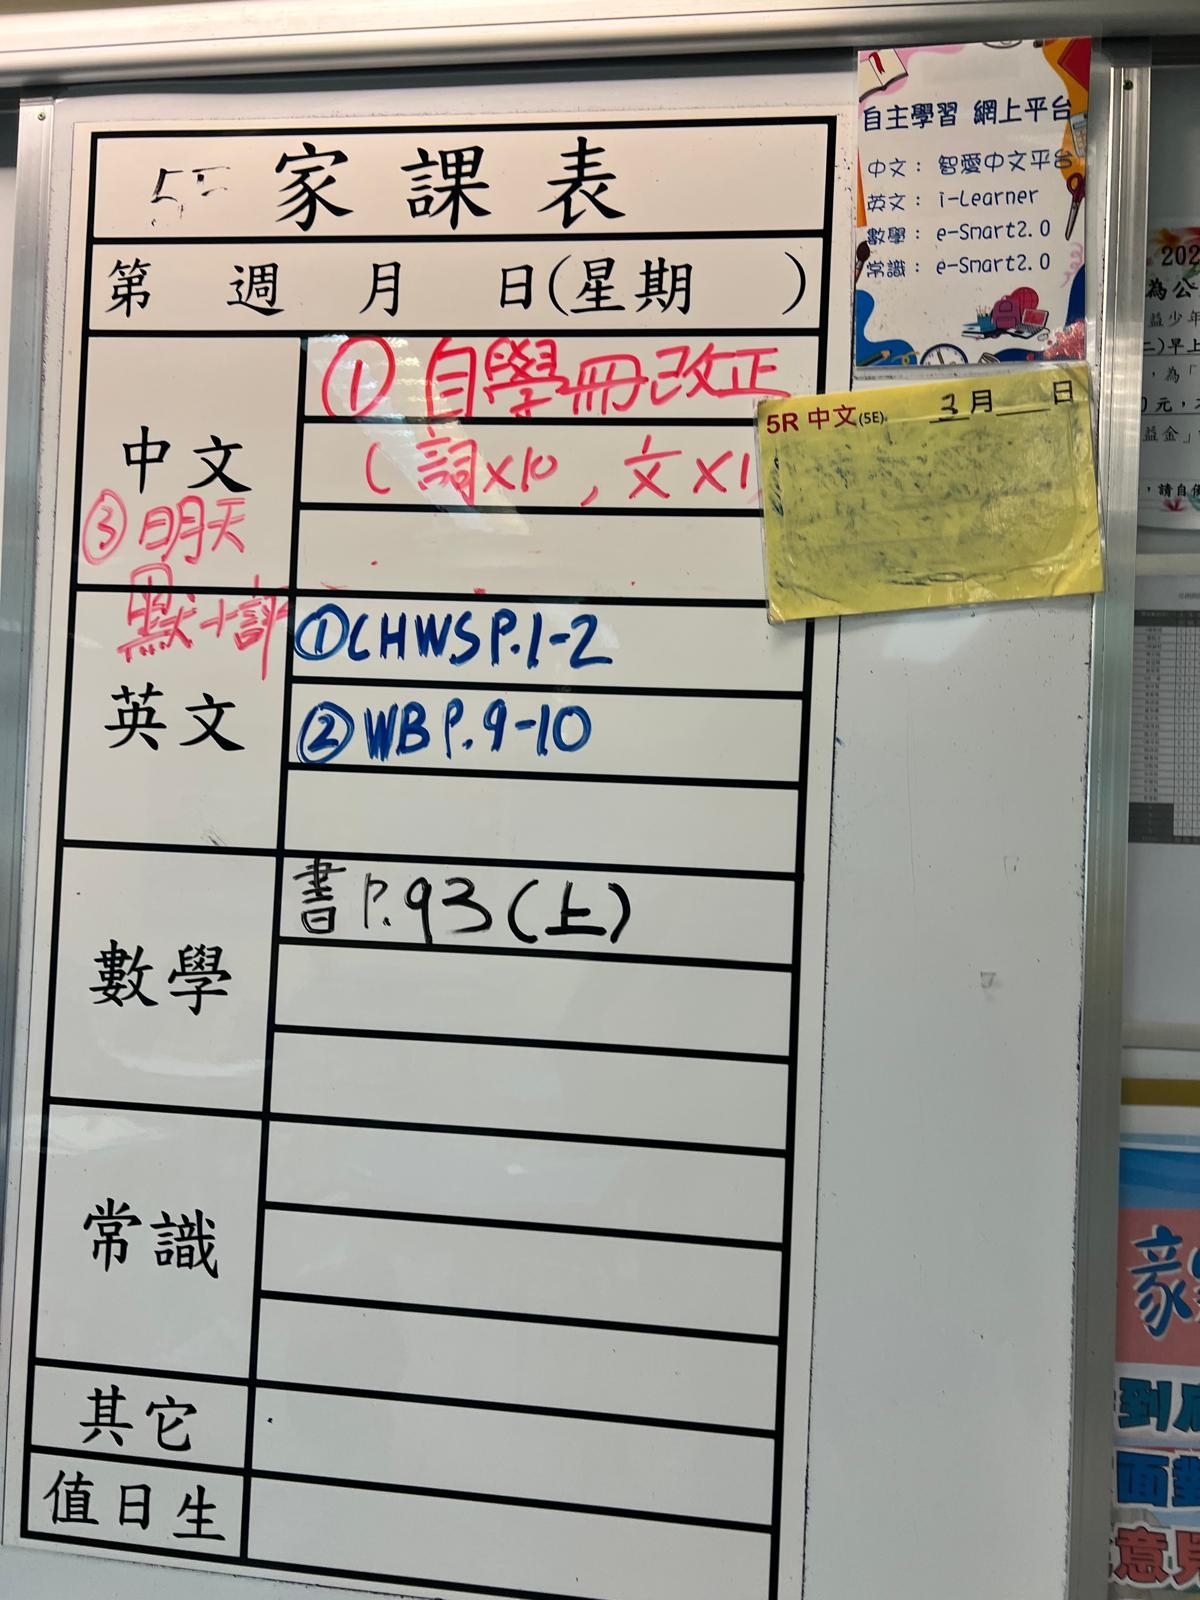 家課表
第 週 月 日(星期 )
中文
① 自學冊改正
( 詞×10 , 文×1
③ 明天
默+評
英文
①CHWS P.1-2
②WB P.9-10
數學
書 P.93(上)
常識
其它
值日生
自主學習 網上平台
中文： 智愛中文平台
英文： i-Learner
數學： e-Smart2.0
常識： e-Smart2.0
5R 中文(5E) 3月 日
202
為公
益少年
二)早上
，為「
0元，
益金」
，請自備
到
面對
意見